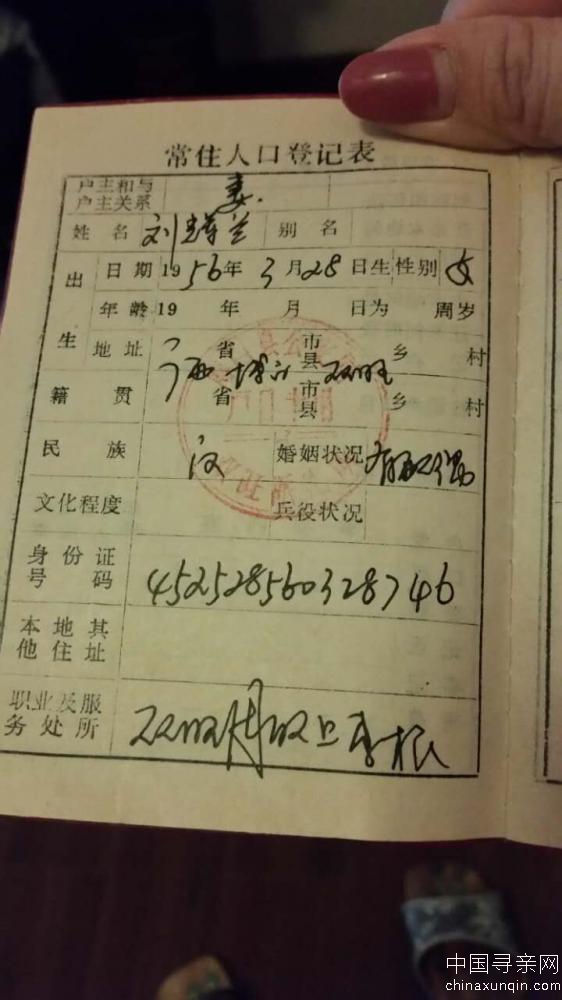 常住人口登记表
户主和与户主关系 妻
姓名 刘 兰 别名
出生 日期 1956年3月28日生 性别 女
年龄 19 年 月 日为 周岁
地址 广西 省 博白 市县 双旺 乡 村
籍贯 省 市县 乡 村
民族 汉 婚姻状况 有配偶
文化程度 兵役状况
身份证号码 452528560328746
本地其他住址
职业及服务处所 双旺
中国寻亲网
chinaxunqin.com